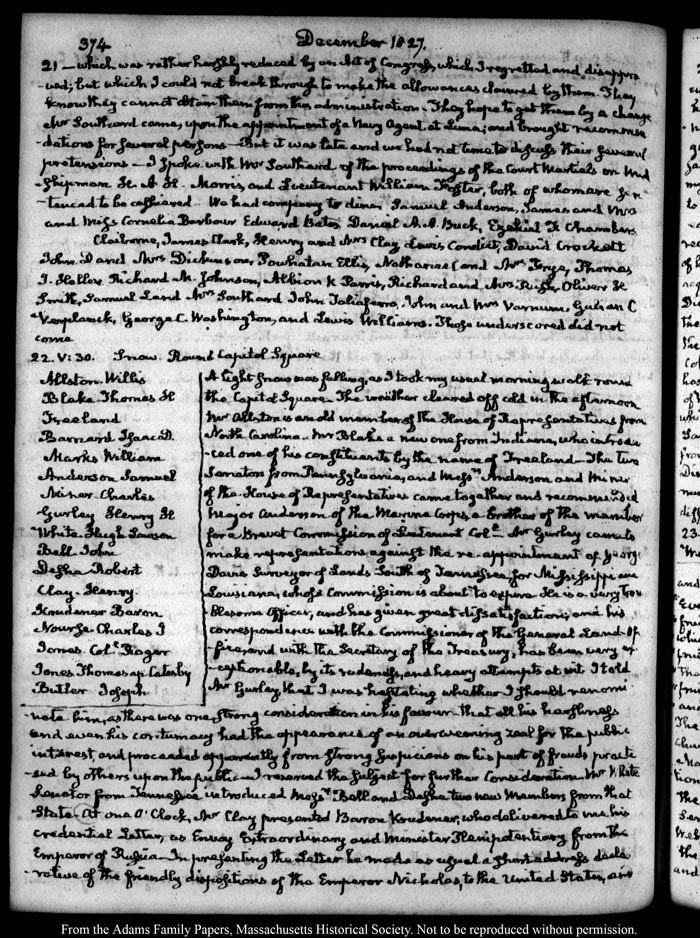 374 December 1827.
21 — which was rather harshly reduced by an Act of Congress, which I regretted and disappro
-ved; but which I could not break through to make the allowances claimed by them. They
know they cannot obtain them from this administration. They hope to get them by a change
Mr Southard came, upon the appointment of a Navy Agent at Lima; and brought recommen
-dations for several persons — But it was late and we had not time to discuss their several
pretensions — I spoke with Mr Southard of the proceedings of the Court Martials on Mid
-shipman H. A. H. Morris and Lieutenant William Foster, both of whom are sen
-tenced to be cashiered — We had company to dine. Samuel Anderson, James and Mrs
and Miss Cornelia Barbour Edward Bates Daniel A. A. Buck, Ezekiel F. Chambers
Claiborne, James Clark, Henry and Mrs Clay, Lewis Condict, David Crockett
John D and Mrs Dickinson, Powhatan Ellis, Nathaniel and Mrs Frye, Thomas
J. Richard M. Johnson, Albion K Parris, Richard and Mrs Rush, Oliver H
Smith, Samuel L and Mrs Southard John Taliaferro, John and Mrs Varnum, Gulian C
Verplanck, George C. Washington, and Lewis Williams. Those underscored did not
come
22. V: 30. Snow. Round Capitol Square
Allston. Willis
Blake. Thomas H
Freeland
Barnard Isaac D.
Marks William
Anderson Samuel
Miner. Charles
Gurley Henry H
White. Hugh Lawson
Bell. John
Desha Robert
Clay. Henry
Krudener Baron
Nourse Charles J
Jones. Coll. Roger
Jones Thomas ap Catesby
Butler Joseph
A light snow was falling, as I took my usual morning walk round
the Capitol Square. The weather cleared off cold in the afternoon
Mr Allston is an old member of the House of Representatives from
North Carolina — Mr Blake a new one from Indiana, who introdu
-ced one of his constituents by the name of Freeland — The two
Senators from Pennsylvania, and Messrs Anderson and Miner
of the House of Representatives came together and recommended
Major Anderson of the Marine Corps, a Brother of the member
for a Brevet Commission of Lieutenant Coll — Mr Gurley came to
make representations against the re-appointment of George
Davis Surveyor of Lands South of Tennessee for Mississippi and
Louisiana, whose Commission is about to expire He is a very trou
-blesome Officer, and has given great dissatisfaction, and his
correspondence with the Commissioner of the General Land-Of
-fice, and with the Secretary of the Treasury, has been very ex
-ceptionable, by its rudeness, and heavy attempts at wit I told
Mr Gurley, that I was hesitating whether I should renomi
-nate him, as there was one strong consideration in his favour — that all his harshness
and even his contumacy had the appearance of an overweening zeal for the public
interest, and proceeded apparently from strong suspicions on his part of frauds practi
-sed by others upon the public — I reserved the subject for further Consideration — Mr White
Senator from Tennessee introduced Messrs Bell and Desha two new Members from that
State — At one O'Clock, Mr Clay presented Baron Krudener, who delivered to me his
credential Letter, as Envoy Extraordinary and Minister Plenipotentiary from the
Emperor of Russia — In presenting the Letter he made as usual a short address decla
-rative of the friendly dispositions of the Emperor Nicholas, to the United States, and
From the Adams Family Papers, Massachusetts Historical Society. Not to be reproduced without permission.